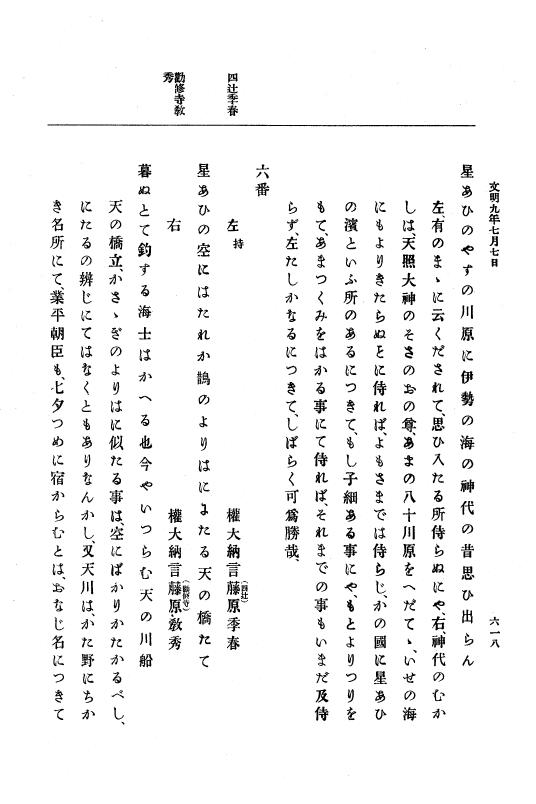 文明九年七月七日
六一八
四辻季春
勸修寺教
秀
星あひのやすの川原に伊勢の海の神代の昔思ひ出らん
左、有のまゝに云くだされて、思ひ入たる所侍らぬにや、右、神代のむか
しは、天照大神のそさのおの尊、あまの八十川原をへだてゝ、いせの海
にもよりきたらぬとに侍れば、よもさまでは侍らじ、かの國に星あひ
の濱といふ所のあるにつきて、もし子細ある事にや、もとよりつりを
もて、あまつくみをはかる事にて侍れば、それまでの事もいまだ及侍
らず、左たしかなるにつきて、しばらく可爲勝哉、
六番
左 持 權大納言藤原季春（四辻）
星あひの空にはたれか鵲のよりはによたる天の橋たて
右 權大納言藤原教秀（勸修寺）
暮ぬとて釣する海士はかへる也今やいつらむ天の川船
天の橋立、かさゝぎのよりはに似たる事は、空にばかりかたかるべし、
にたるの辨じにてはなくともありなんかし、又天川は、かた野にちか
き名所にて、業平朝臣も、七夕つめに宿からむとは、おなじ名につきて